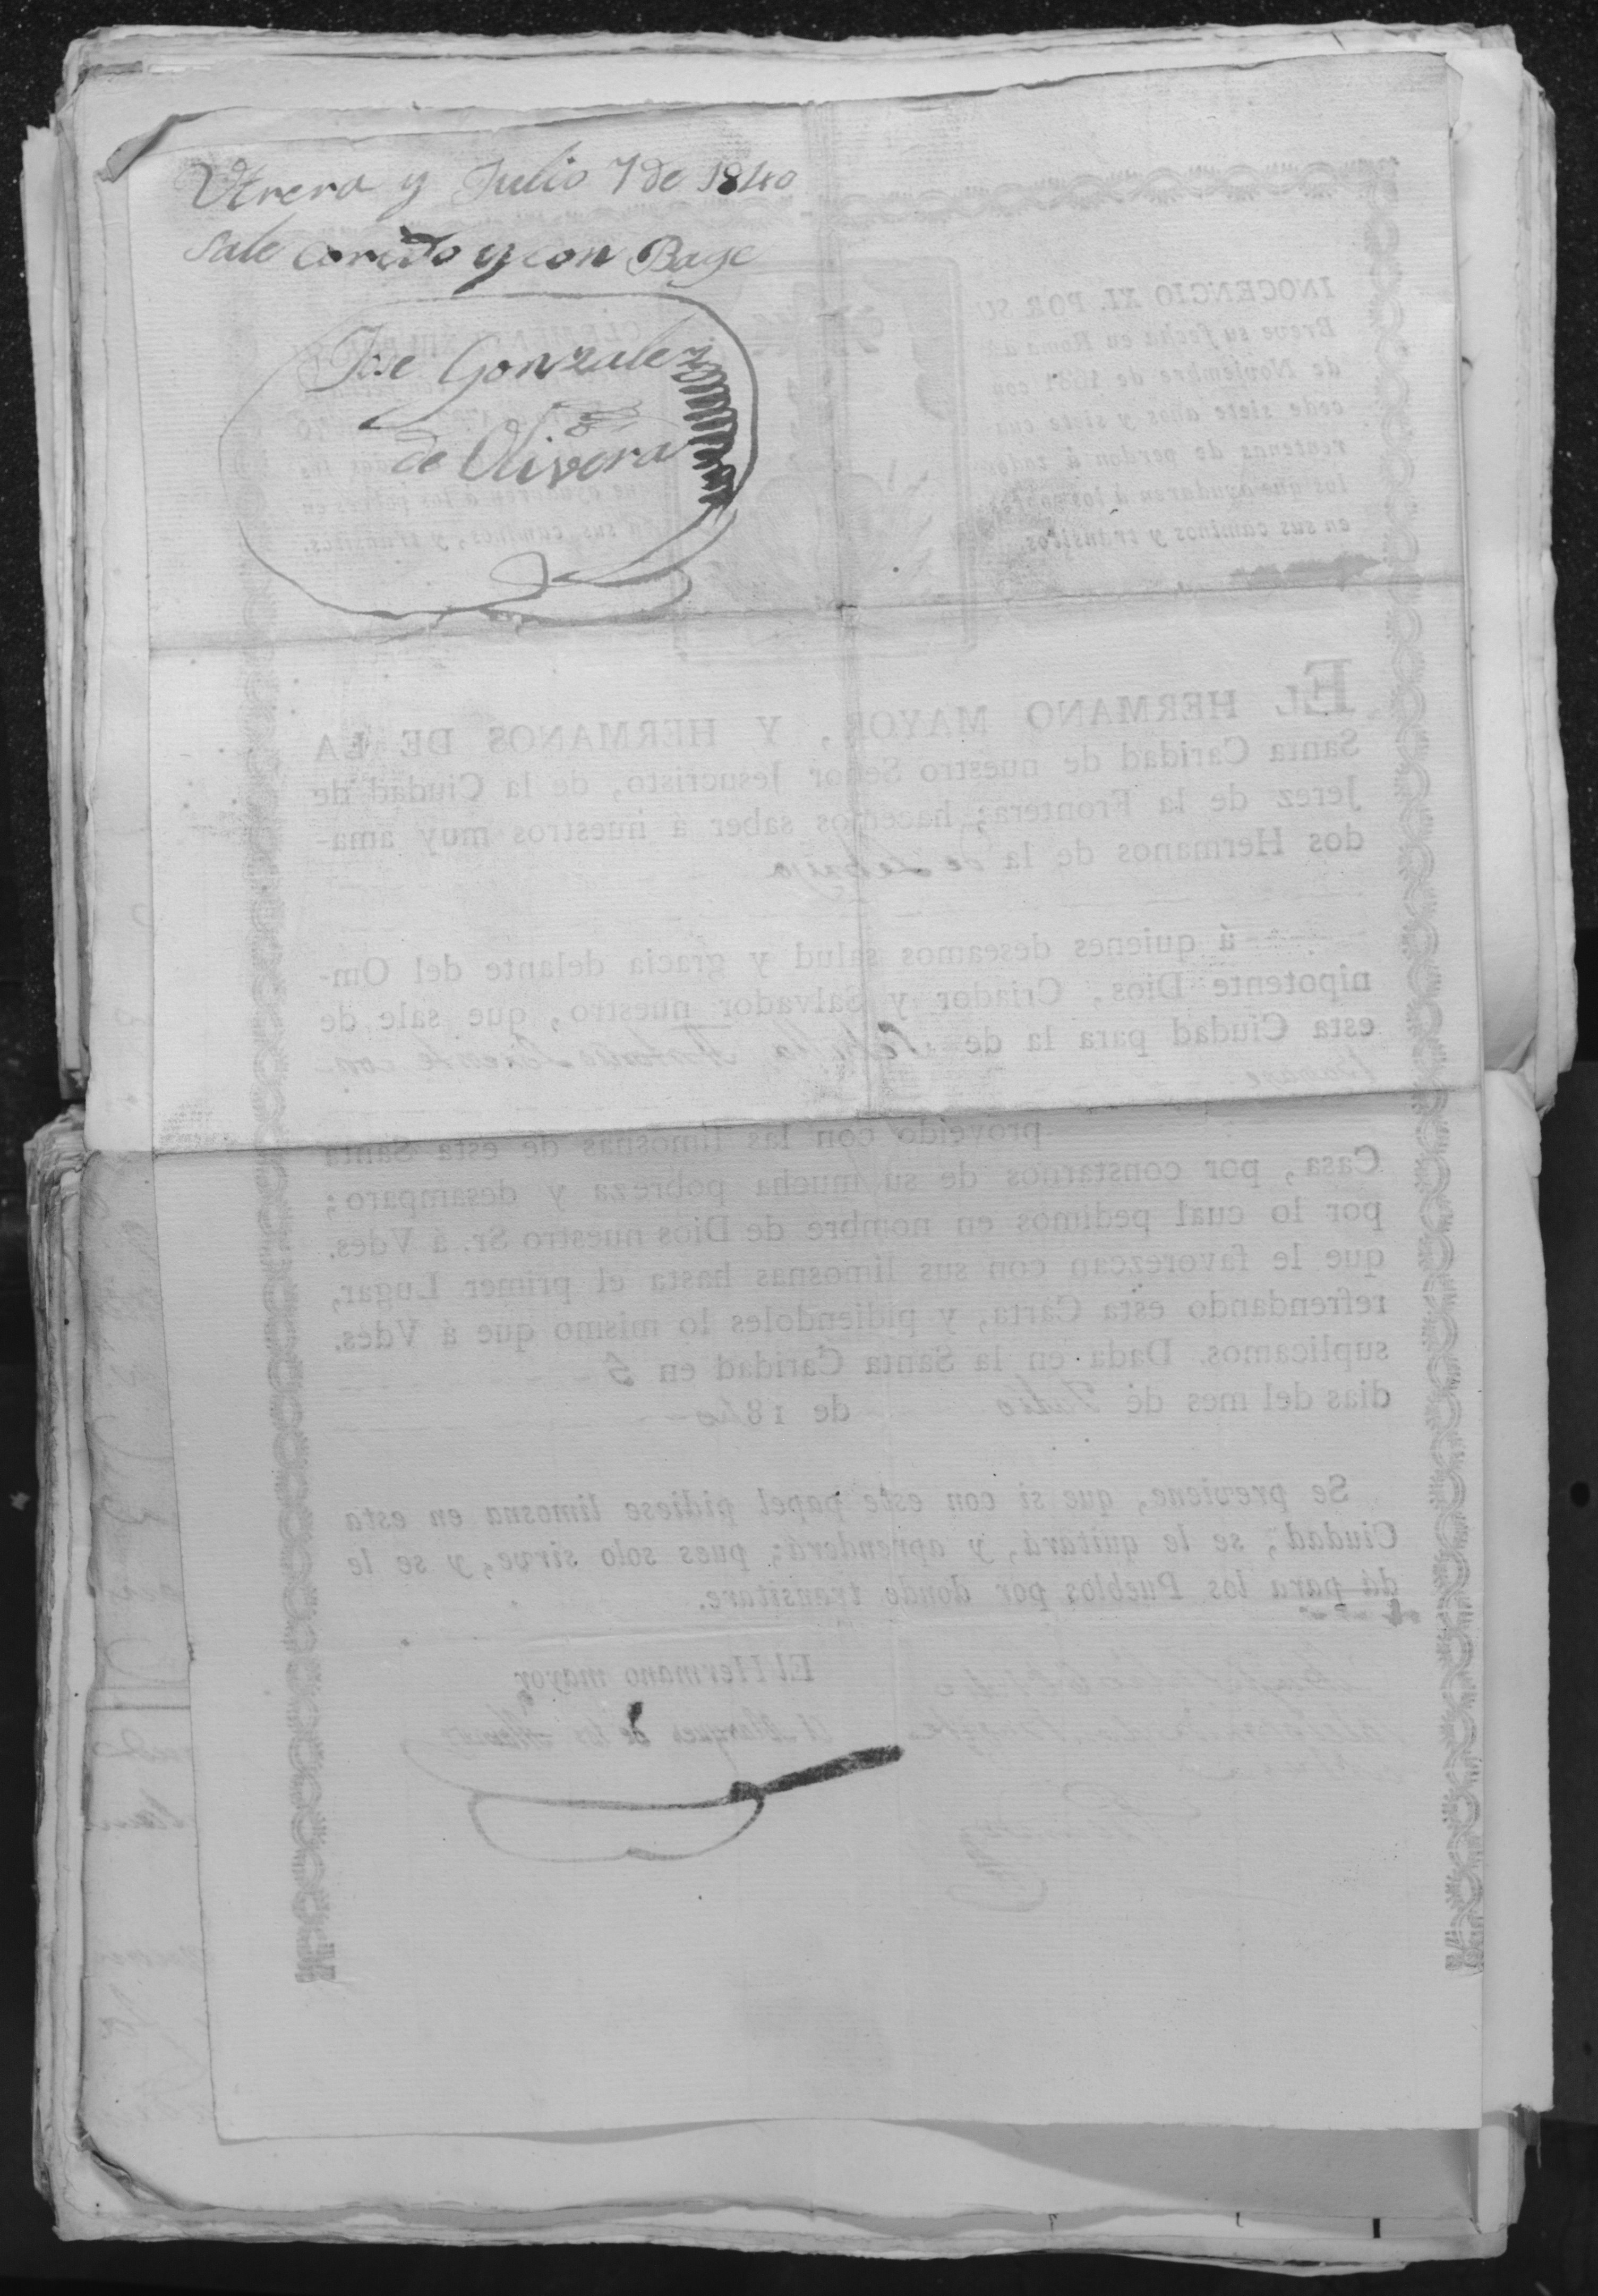 Utrera y Julio 7 de 1840
sale corrido y con Bage
Jose Gonzalez
de Olivera
INOCENCIO XI. POR SU
Breve su fecha en Roma á
de Noviembre de 1681 con
cede siete años y siete cua
rentenas de perdon á todos
los que ayudaren á los pobres
en sus caminos y tránsitos.
que ayudaren á los pobres en
sus caminos, y tránsitos.
EL HERMANO MAYOR, Y HERMANOS DE LA
Santa Caridad de nuestro Señor Jesucristo, de la Ciudad de
Jerez de la Frontera; hacemos saber á nuestros muy ama-
dos Hermanos de la de Lebrija
á quienes deseamos salud y gracia delante del Om-
nipotente Dios, Criador y Salvador nuestro, que sale de
esta Ciudad para la de Sevilla Antonio con
proveido con las limosnas de esta Santa
Casa, por constarnos de su mucha pobreza y desamparo;
por lo cual pedimos en nombre de Dios nuestro Sr. á Vdes.
que le favorezcan con sus limosnas hasta el primer Lugar,
refrendando esta Carta, y pidiendoles lo mismo que á Vdes.
suplicamos. Dada en la Santa Caridad en 5
dias del mes de Julio de 1840
Se previene, que si con este papel pidiese limosna en esta
Ciudad, se le quitará, y aprenderá; pues solo sirve, y se le
dá para los Pueblos por donde transitare.
El Hermano mayor
El Marques de los